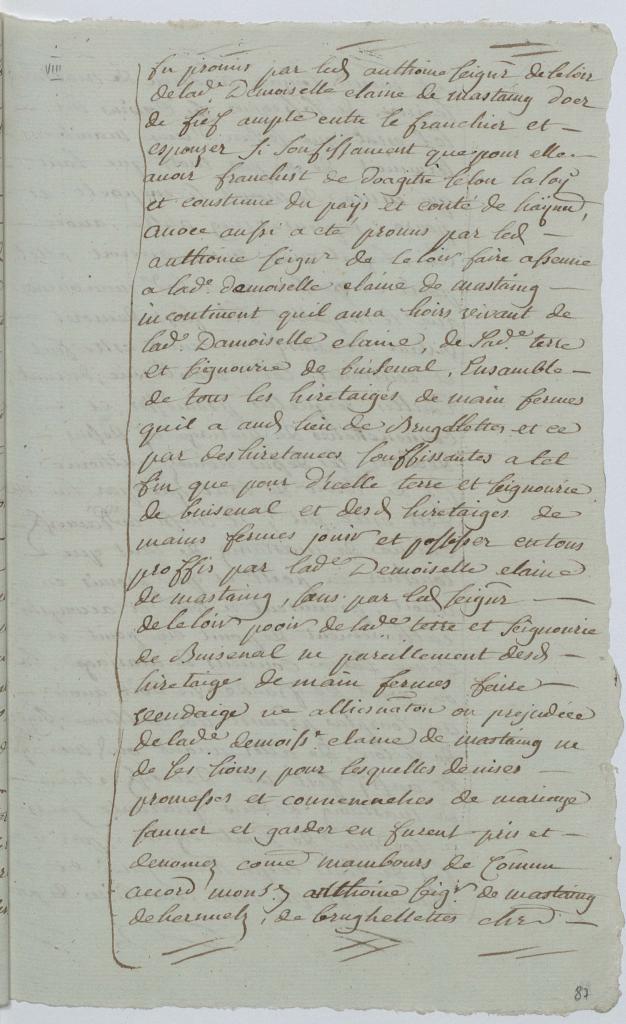 VIII
fu promis par led anthoine seign.r deleloir
de lad.e Demoiselle claine de mastaing doer
de fief ample entre le franchier et —
espouzer si souffissament que pour elle —
avoir franchist de doagire selon la loy
et coustume du pays et conté de haynau,
avoec aussi a ete promis par led —
anthoine seign.r de le loir faire assenne
a lad.e demoiselle claine de mastaing —
incontinent quil aura hoirs vivant de
lad.e Damoiselle claine, de sad.e terre
et seignourie de buisenal, Ensamble —
de tous les hiretaiges de main fermes
quil a aud lieu de Brugelettes et ce
par deshiretances souffissantes a tel
fin que pour d'icelle terre et seignourie
de buisenal et desd hiretaiges de
mains fermes jouir et possesser en tous
proffis par lad.e Demoiselle claine
de mastaing, sans par led seign.r —
de le loir pooir de lad.e terre et seignourie
de Buisenal ne pareillement desd —
hiretaige de main fermes faire —
vendaige ne allienaton ou prejudice
de lad.e demoiss.e claine de mastaing ne
de ses hoirs, pour lesquelles devises —
promesses et convenenches de mariage
sauver et garder en furent pris et —
denomez come mambours de Commun
accord mons.r anthoine seig.r de mastaing
de hermelz, de brughellettes cher —
87